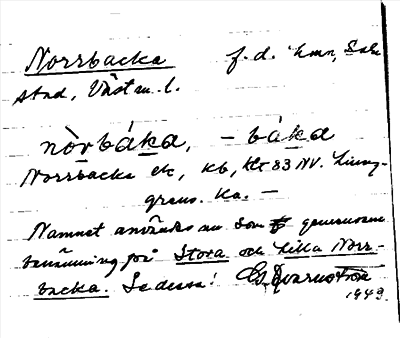 Norrbacka f.d. hmn, Sala
stad, Västm. l.
nòrbáka, – báka
Norrbacka ek, Kb, 83 NV.
grans. Ka. –
Namnet användes nu som gemensam
benämning på Stora och Lilla Norr-
backa. Se dessa!
1943.